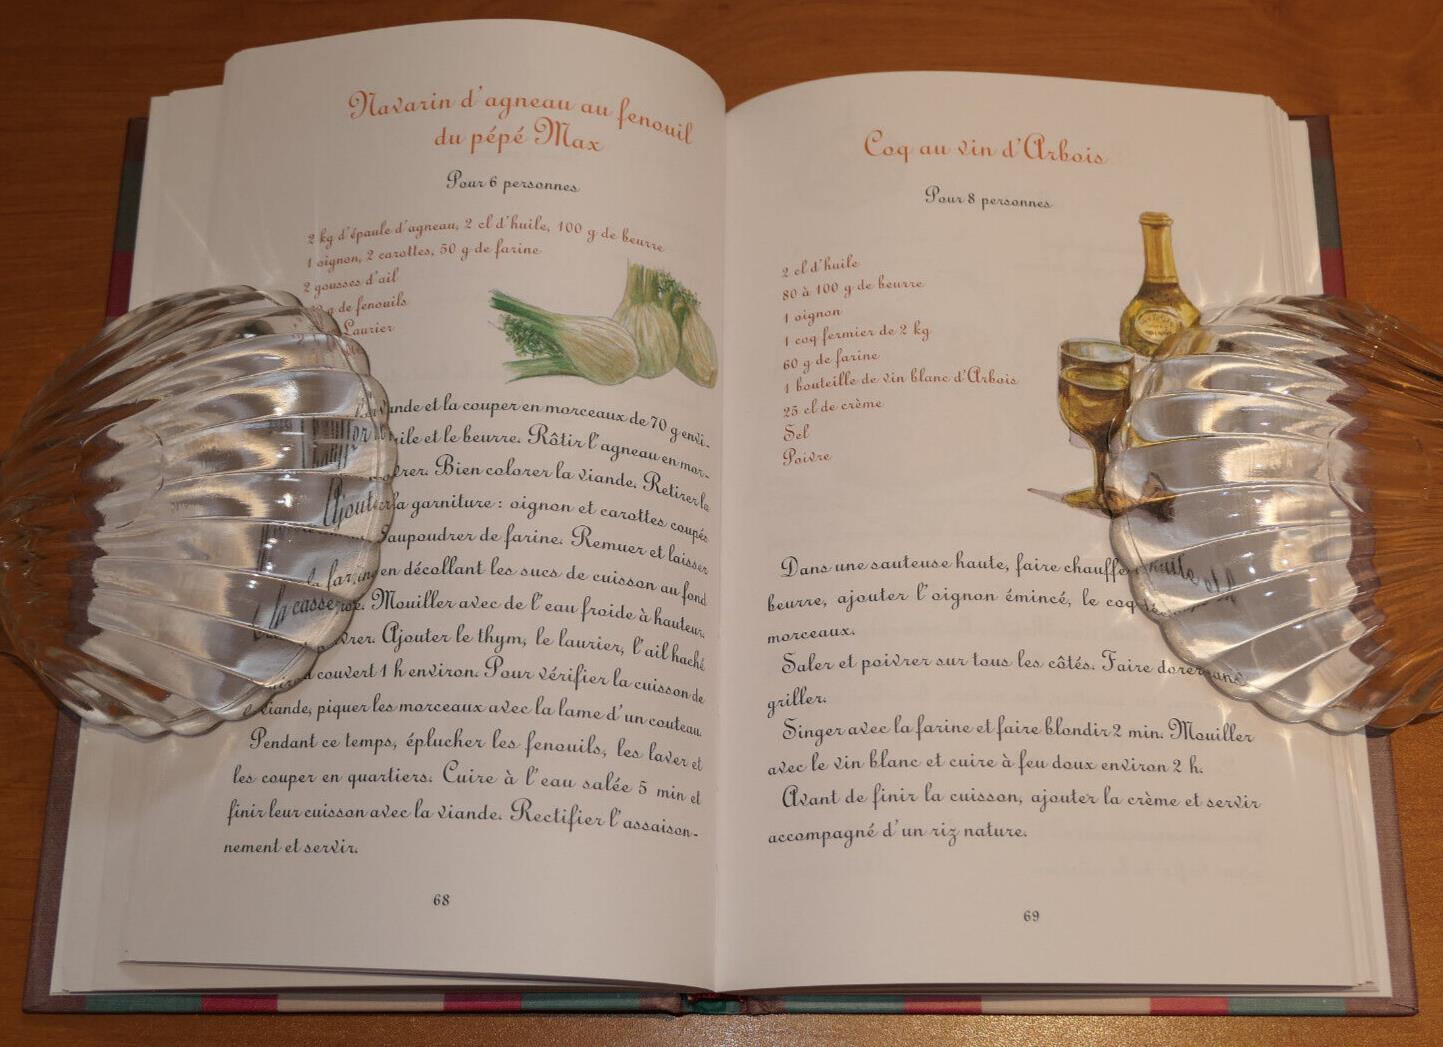 Navarin d'agneau au fenouil
du pépé Max
Pour 6 personnes
2 kg d'épaule d'agneau, 2 cl d'huile, 100 g de beurre
1 oignon, 2 carottes, 50 g de farine
2 gousses d'ail
g de fenouils
Laurier
viande et la couper en morceaux de 70 g envi-
et le beurre. Rôtir l'agneau en mor-
Bien colorer la viande. Retirer la
Ajouter la garniture : oignon et carottes coupés
Saupoudrer de farine. Remuer et laisser
la farine en décollant les sucs de cuisson au fond
la casserole. Mouiller avec de l'eau froide à hauteur.
Ajouter le thym, le laurier, l'ail haché
couvert 1 h environ. Pour vérifier la cuisson de
viande, piquer les morceaux avec la lame d'un couteau.
Pendant ce temps, éplucher les fenouils, les laver et
les couper en quartiers. Cuire à l'eau salée 5 min et
finir leur cuisson avec la viande. Rectifier l'assaison-
nement et servir.
68
Coq au vin d'Arbois
Pour 8 personnes
2 cl d'huile
80 à 100 g de beurre
1 oignon
1 coq fermier de 2 kg
60 g de farine
1 bouteille de vin blanc d'Arbois
25 cl de crème
Sel
Poivre
Dans une sauteuse haute, faire chauffer huile et le
beurre, ajouter l'oignon émincé, le coq
morceaux.
Saler et poivrer sur tous les côtés. Faire dorer sans
griller.
Singer avec la farine et faire blondir 2 min. Mouiller
avec le vin blanc et cuire à feu doux environ 2 h.
Avant de finir la cuisson, ajouter la crème et servir
accompagné d'un riz nature.
69